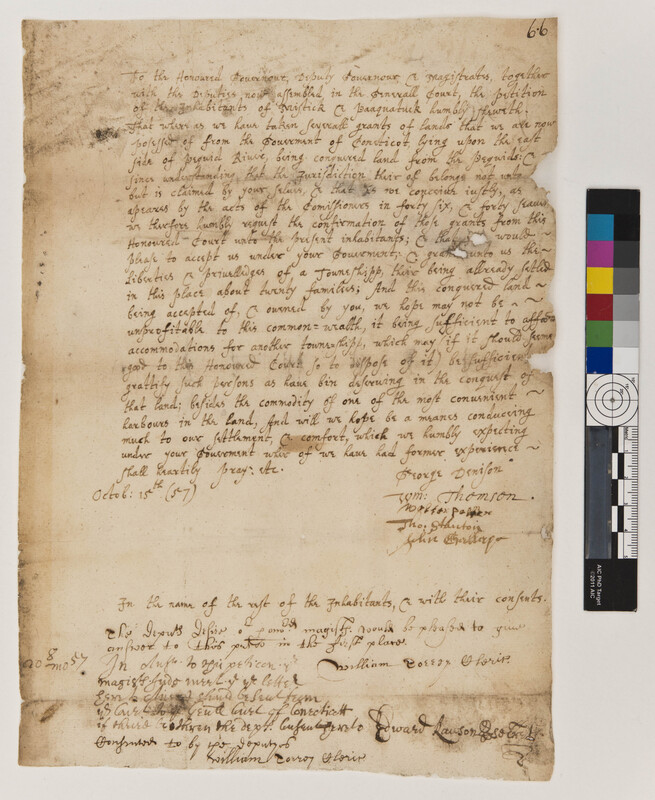 66
To the Honoured Governour, Deputy Governour & Magistrates, together
with the Deputies now assembled in the Generall Court, the petition
of the Inhabitants of Mistick & Paaquatuck humbly sheweth,
That whereas we have taken severall grants of lands that we are now
posesed of from the Goverment of Conecticot lying upon the east
side of Pequid River, being conquered land from the Pequids; &
since understanding that the Jurisdiction their of belongs not unto
but is claimed by your selves, & that we conceive justly, as
apeares by the acts of the Comissioners in forty six, & forty seaven
we therfore humbly request the confirmation of those grants from this
Honoured Court unto the present inhabitants; & that would
please to accept us under your Goverment; & grant unto us the
liberties & priviledges of a Towneshipp, their being allready setled
in this place about twenty families; And this conquered land
being accepted of, & owned by you, we hope may not be
unprofitable to this common=wealth, it being sufficient to afford
accommodations for another towneshipp, which may (if it should seeme
good to this Honoured Court so to dispose of it) be sufficient
gratify such persons as have bin deserving in the conquest of
that land; besides the commodity of one of the most convenient
harbours in the land, And will we hope be a meanes conducing
much to our settlement, & comfort, which we humbly expecting
under your Goverment wher of we have had former experience
shall heartily pray. etc.
Octob: 15th (57)
George Denison
Wm: Thomson.
Walter Palmer
Tho: Stanton
In the name of the rest of the Inhabitants, & with their consents.
The Deputs Desire o hono magists would be pleased to give
answer to this peticon in the first place
William Torrey Cleric.
20 8 mo 57
In Ans to this peticon ye
magists Judg meet yt ye letter
should be sent from
Court to ye Genll Court of Conecticott
if their brethren the depts Consent hereto Edward Rawson Secrety
Consented to by the deputyes
William Torrey Cleric